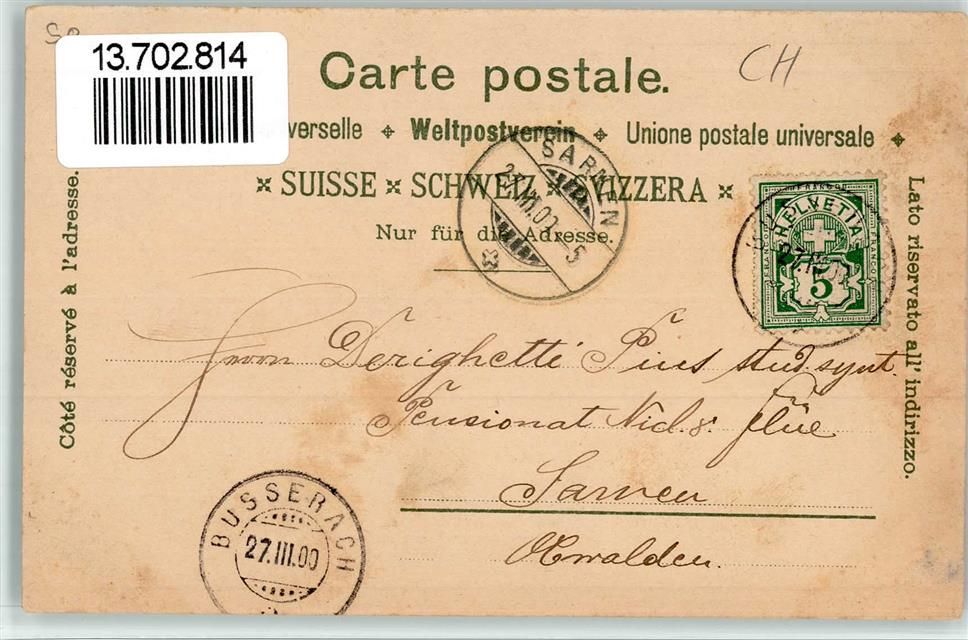 13.702.814
CH
Carte postale.
verselle ✦ Weltpostverein ✦ Unione postale universale ✦
× SUISSE × SCHWEIZ × SVIZZERA ×
Nur für die Adresse.
Côté réservé à l'adresse.
Lato riservato all' indirizzo.
SARNEN
27.III.00. -5
HELVETIA
FRANCO
5
Herrn Derighetti Pius stud. synt.
Pensionat Nicl. v. Flüe
Sarnen
Obwalden.
BUSSERACH
27.III.00